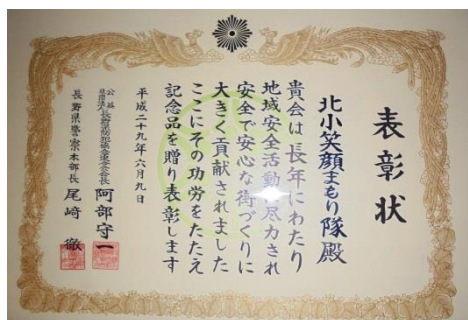 表彰状
北小笑顔まもり隊殿
貴会は長年にわたり
地域安全活動に尽力され
安全で安心な街づくりに
大きく貢献されました
ここにその功労をたたえ
記念品を贈り表彰します
平成二十九年六月九日
公益
社団法人長野県防犯協会連合会会長 阿部守一
長野県警察本部長 尾﨑徹